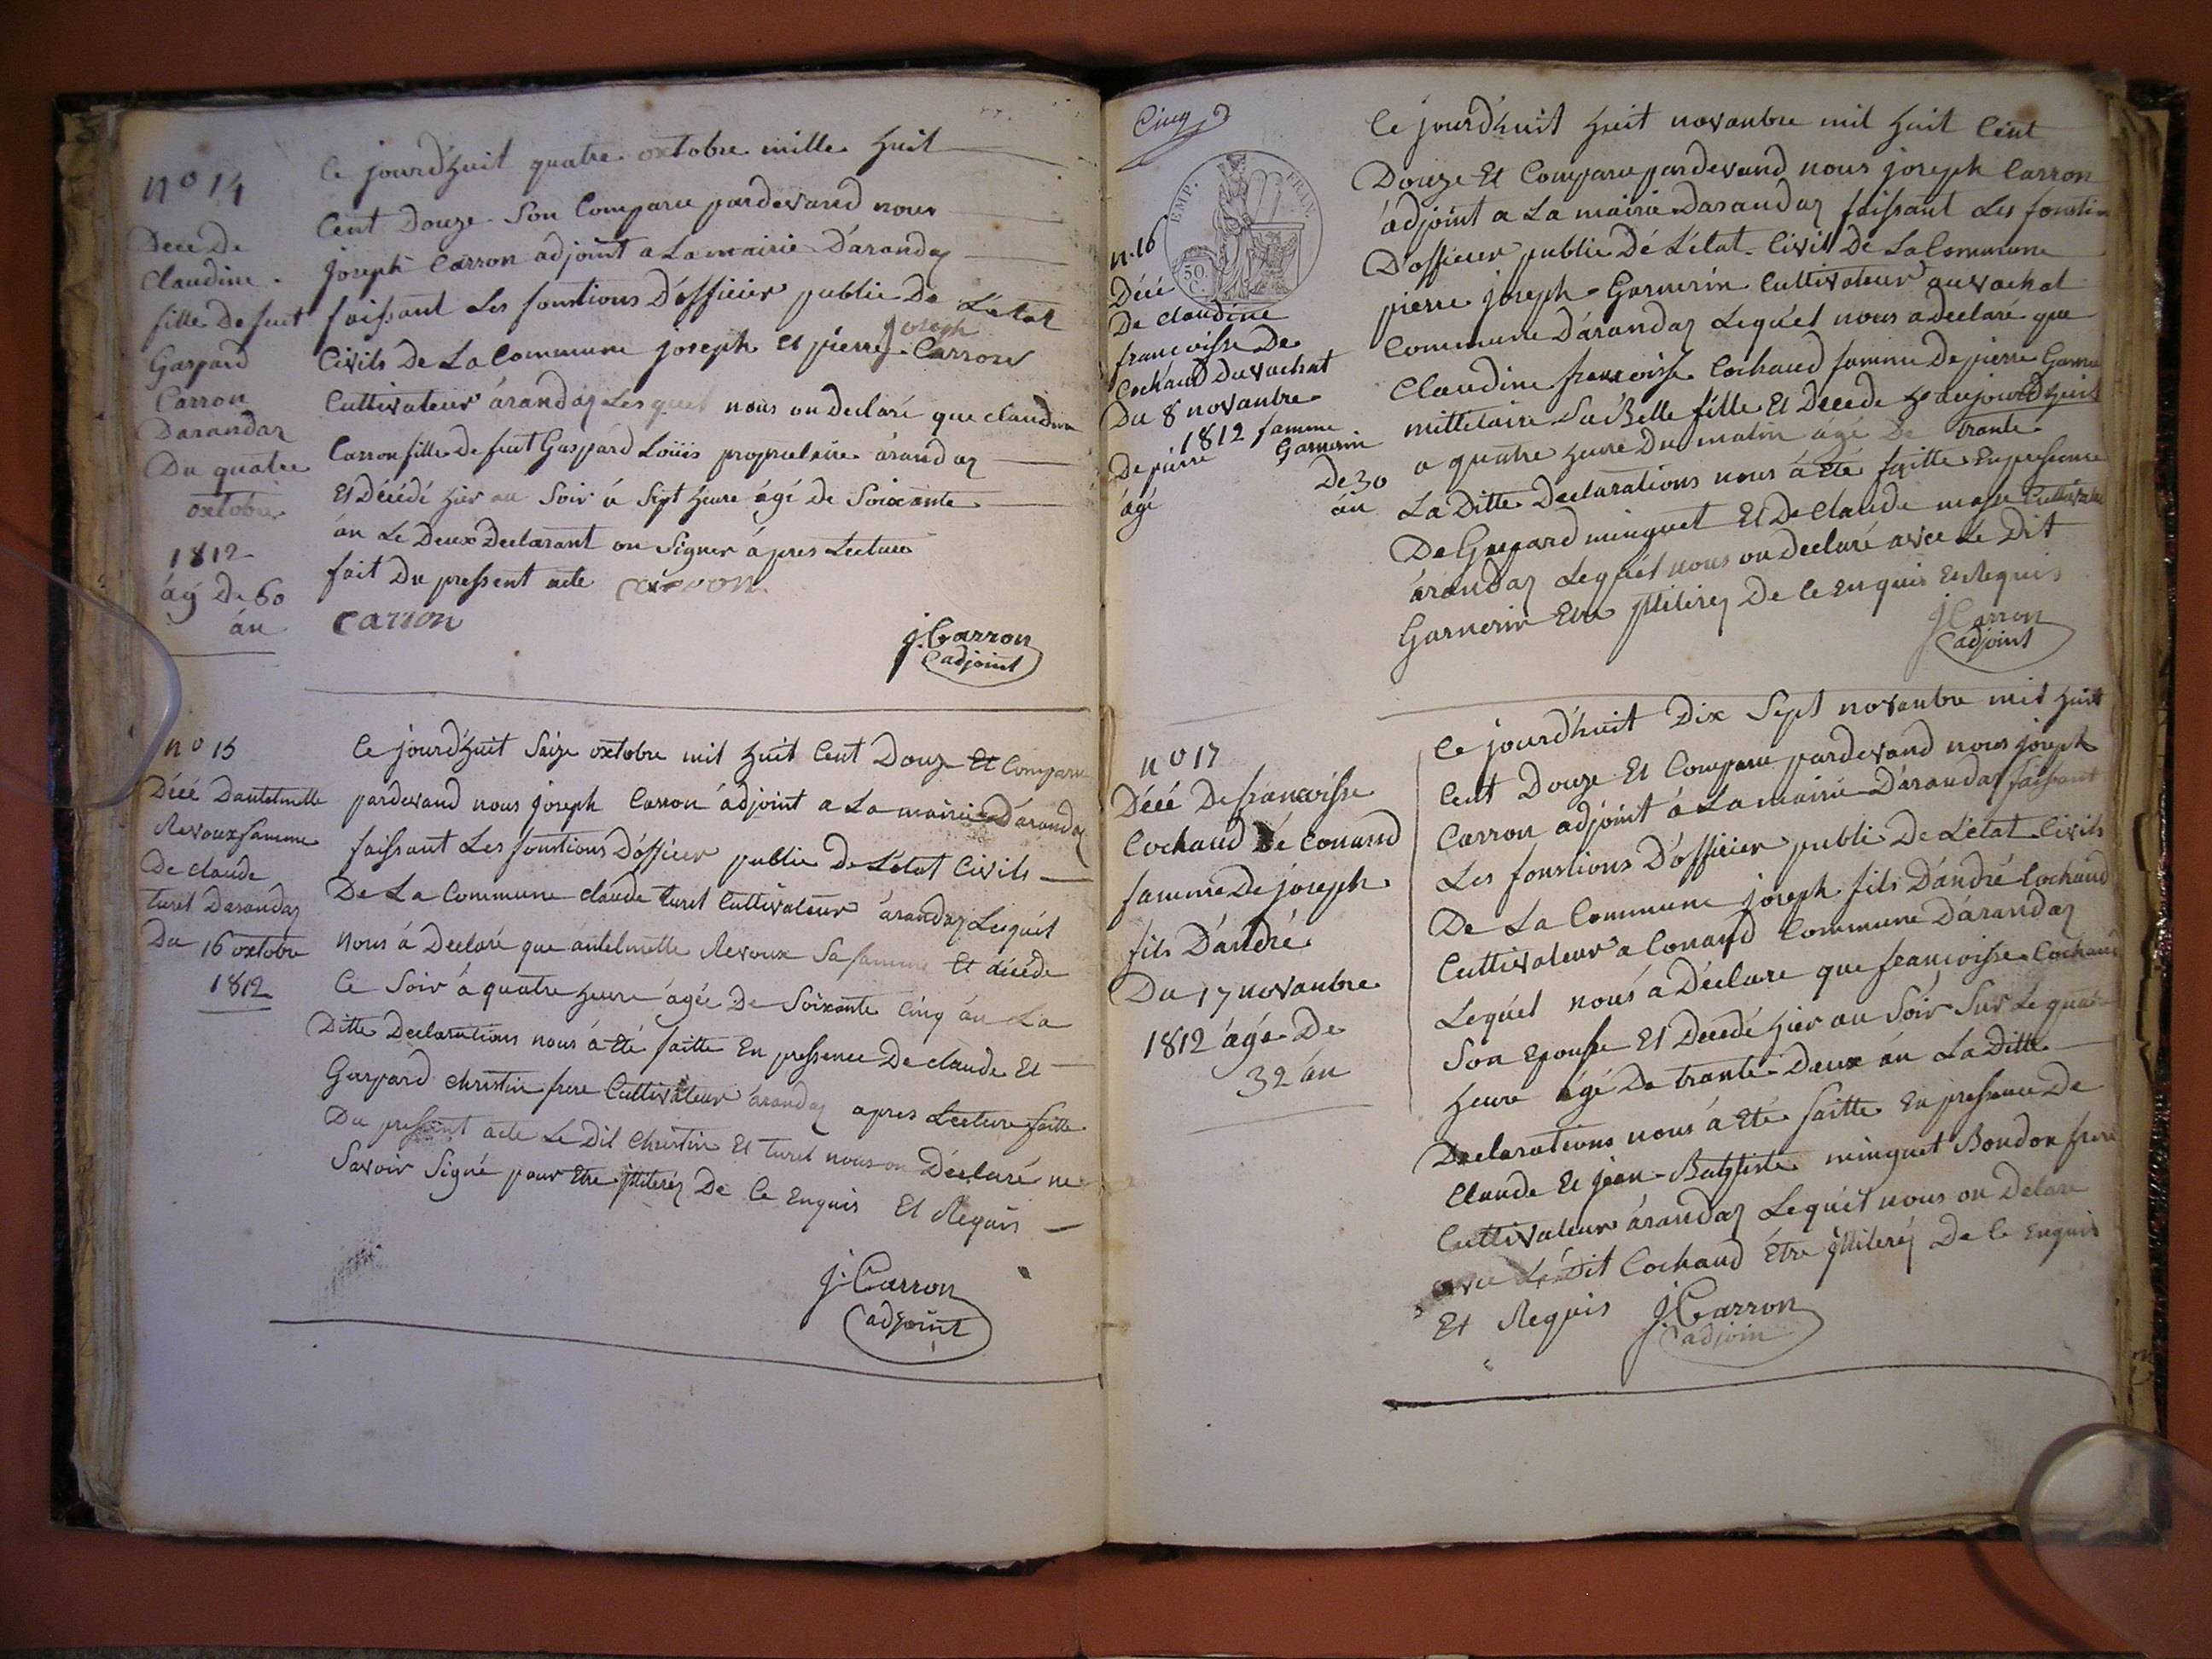 n° 14
Décé De
Claudine
fille De feut
Gaspard
Carron
Darandaz
Du quatre
oxtobre
1812
ágé De 60
án
Ce jourd'huit quatre oxtobre mille huit
Cent Douze Son Comparu pardevand nous
joseph Carron adjoint a La mairie D'arandaz
faissant Les fonstions D'officier public De L'etat
Civils De La Commune joseph et pierre joseph Carron
Cultivateur árandaz Lesquel nous on Declaré que claudine
Carron fille De feut Gaspard Loüis proprietaire árandaz
Et Décédé hier au Soir á Sept heure ágé de Soixante
án Le Deux Declarant on Signer ápres Lecture
fait Du pressent acte carron
carron
j. Carron
adjoint
n° 15
Décé Dantelmelle
Revoux famme
De claude
turel Darandaz
Du 16 oxtobre
1812
Ce jourd'huit Saize oxtobre mil huit Cent Douze Et Comparu
pardevand nous joseph Carron ádjoint a La mairie D'arandaz
faissant Les fonstions D'officier public De L'etat Civils
De La Commune claude turel Cultivateur árandaz Lequél
nous á Declaré que ántelmelle Revoux Sa famme Et décéde
Ce Soir á quatre heure ágée De Soixante Cinq án La
Ditte Declarations nous á été faitte En pressence De claude Et
Gaspard christin frere Cultivateur árandaz apres Lecture faitte
Du pressent acte Le Dit Christin Et turel nous on Déclaré ne
Savoir Signé pour Etre jlliteréz De Ce Enquis Et Requis
j. Carron
adjoint
Cinq
EMP. FRAN.
50 C.
n. 16
Décé
De claudine
françoisse De
Cochaud Duvachat
Du 8 novanbre
1812 famme
De pierre Garnerin
ágé De 30
án
Ce jourd'huit huit novanbre mil huit Cent
Douze Et Comparu pardevand nous joseph Carron
ádjoint a La mairie Darandaz faissant Les fonstion
D'officier public Dé L'état Civil De La Commune
pierre joseph Garnerin Cultivateur au vachat
Commune D'árandaz Lequél nous a Declaré que
Claudine françoisse Cochaud famme De pierre Garne
millitaire Sa Belle fille Et Décede aujourd'huit
a quatre heure Du matin ágé De trante
La Ditte Declarations nous á été faitte En pressence
De Gaspard minguet Et De claude Cultivateur
árandaz Lequél nous on Declaré avec Le Dit
Garnerin Etre jlliteréz De Ce Enquis Et Requis
j. Carron
adjoint
n° 17
Décé De françoisse
Cochaud Dé Conand
famme De joseph
fils D'andré
Du 17 novanbre
1812 ágé De
32 án
Ce jourd'huit Dix Sept novanbre mil huit
Cent Douze Et Comparu pardevand nous joseph
Carron adjoint á La mairie D'arandaz faissant
Les fonstions D'officier public De L'etat Civils
De La Commune joseph fils D'andré Cochaud
Cultivateur a Conand Commune D'árandaz
Lequél nous á Déclare que françoisse Cochaud
Son Epousse Et Décedé hier au Soir Sur Le quatre
heure ágé De trante Deux án La Ditte
Declarations nous á été faitte En pressence De
Claude Et jean-Batpiste minguet Bondon frere
Cultivateur árandaz Lequél nous on Delare
avec Le Dit Cochaud étre jlliteréz De Ce Enquis
Et Requis j. Carron
adjoin